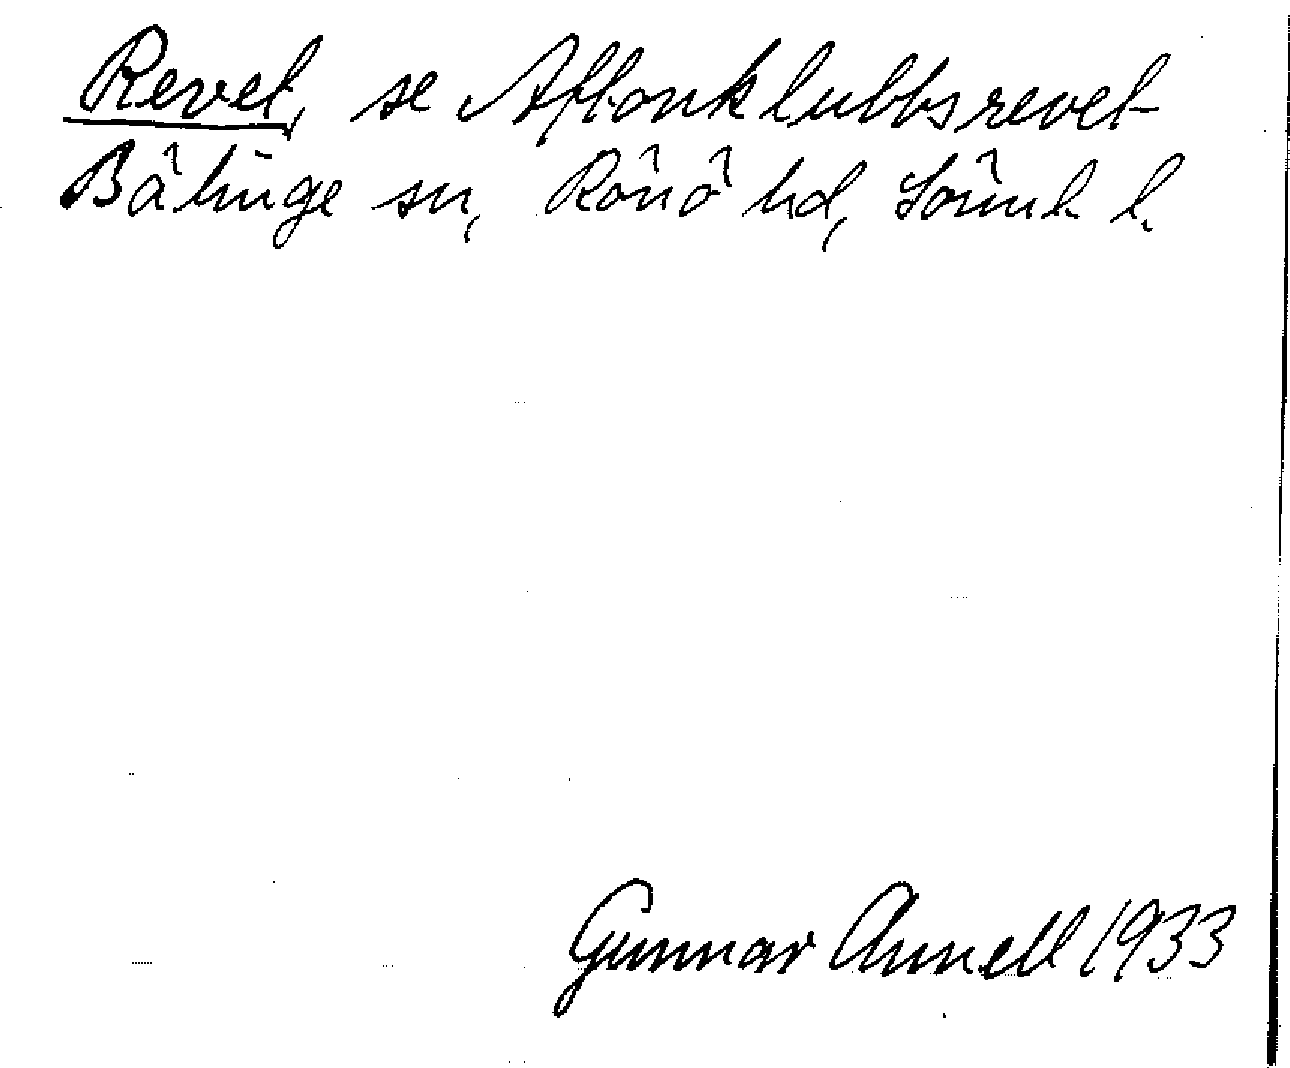 Revet, se Aftonklubbsrevet
Bälinge sn, Rönö hd, Sörml. l.
Gunnar Annell 1933